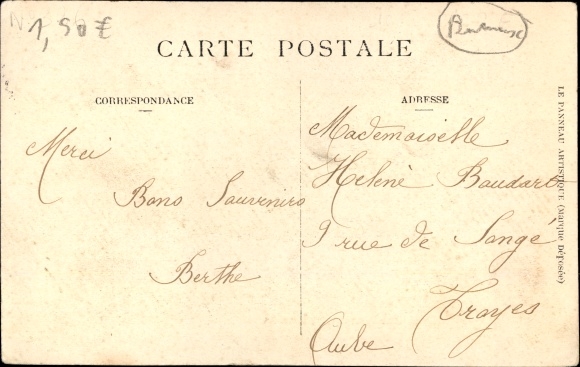 1,50 €
CARTE POSTALE
CORRESPONDANCE
ADRESSE
Merci
Bons Souvenirs
Berthe
Mademoiselle
Helenè Baudart
9 rue de Songé
Troyes
Aube
LE PANNEAU ARTISTIQUE (Marque Déposée)